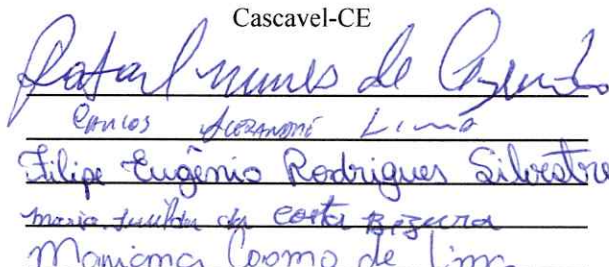 Cascavel-CE
Rafael nunes de Azevedo
Carlos Alexandre Lima
Filipe Eugênio Rodrigues Silvestre
Maria da Costa Bezerra
Mariana Cosmo de Lima